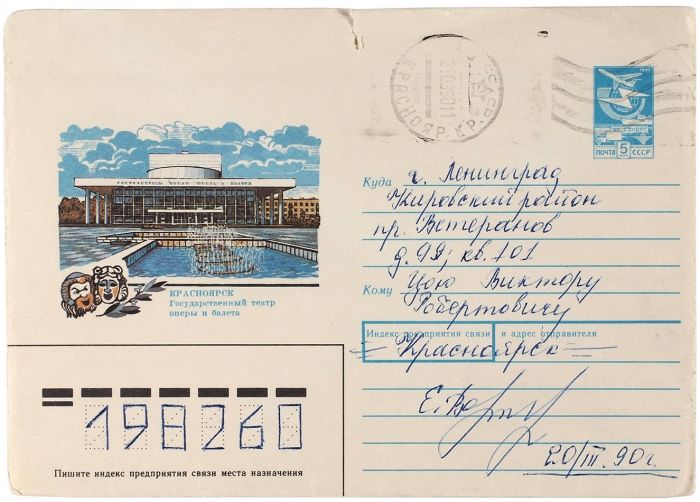 ПОЧТА 5 СССР
Куда г. Ленинград
Кировский район
пр. Ветеранов
д. 99; кв. 101
Кому Цою Виктору
Робертовичу
КРАСНОЯРСК
Государственный театр
оперы и балета
Индекс предприятия связи и адрес отправителя
= Красноярск =
20/III. 90 г.
198260
Пишите индекс предприятия связи места назначения